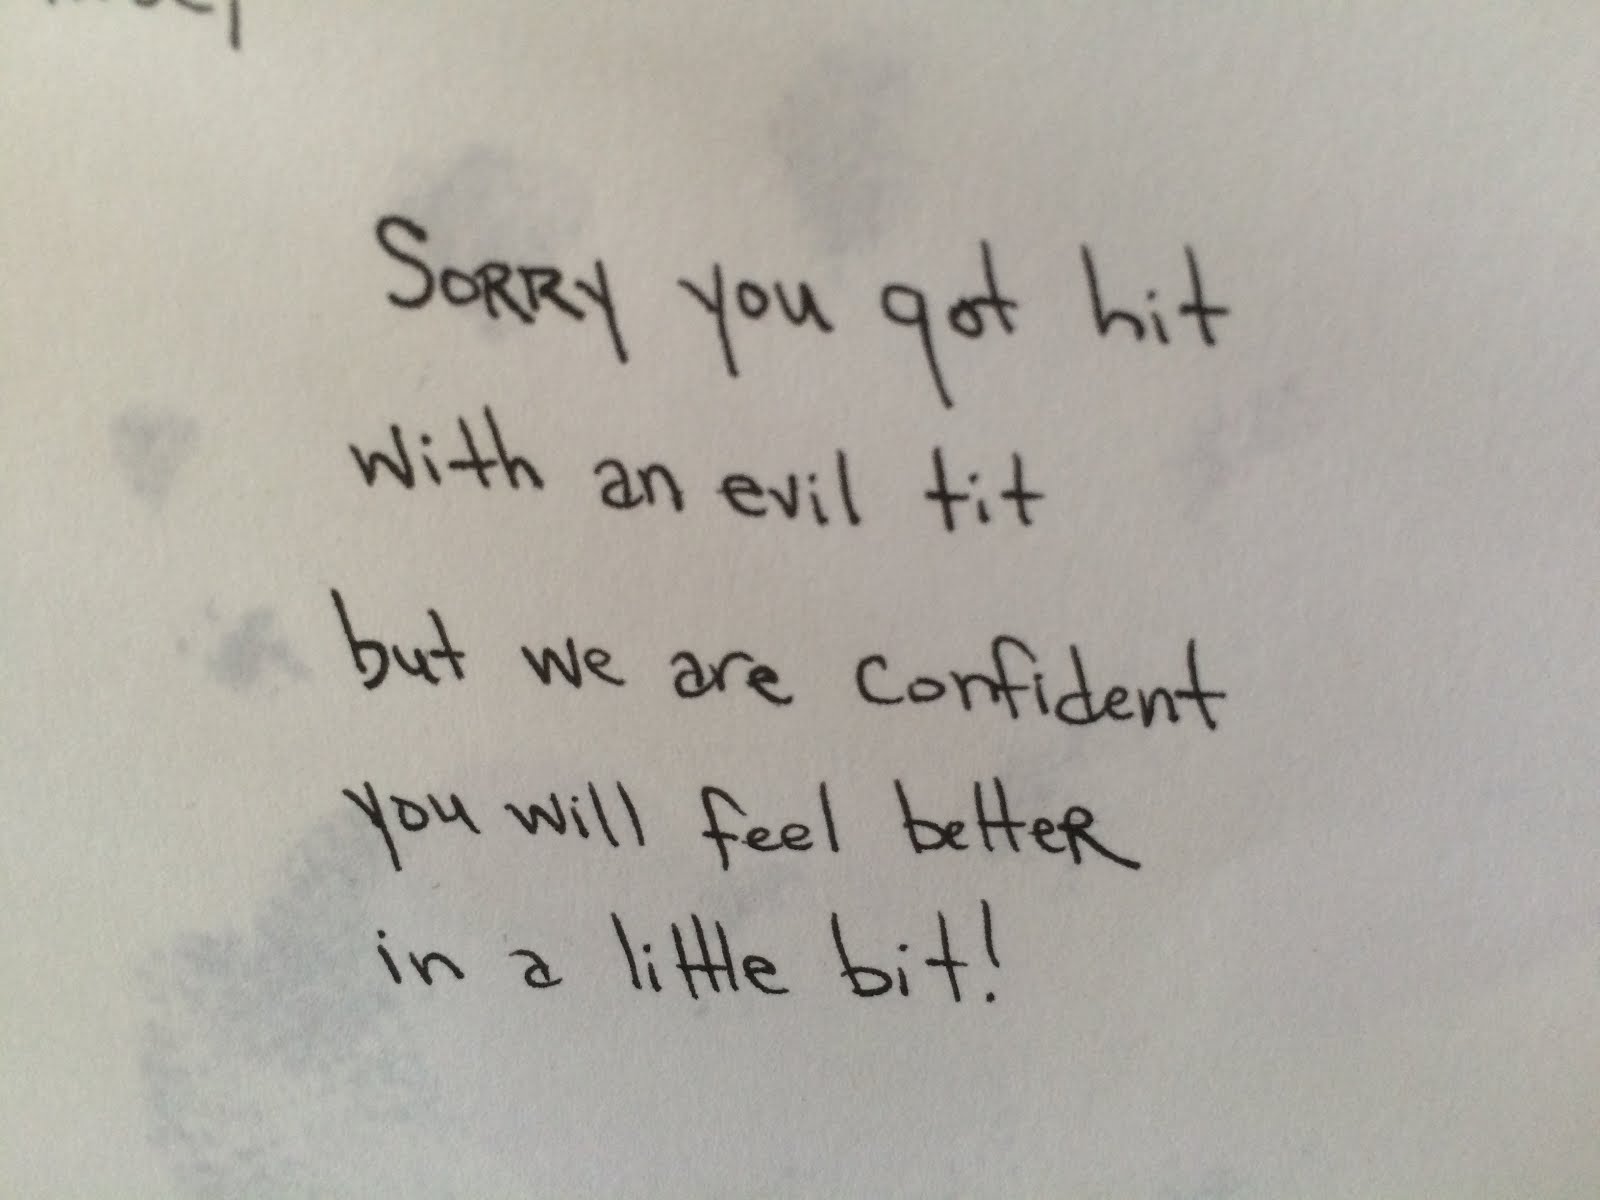 Sorry you got hit
with an evil tit
but we are confident
you will feel better
in a little bit!